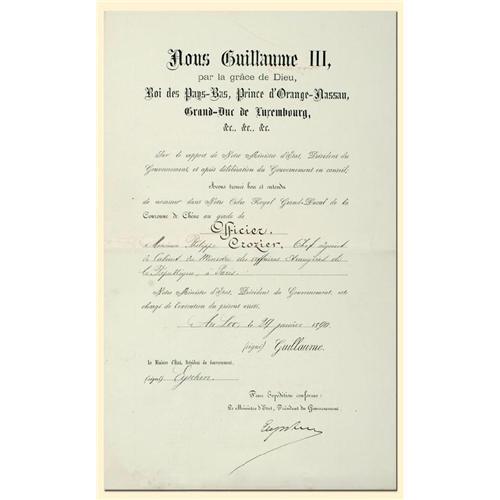 Nous Guillaume III,
par la grâce de Dieu,
Roi des Pays-Bas, Prince d'Orange-Nassau,
Grand-Duc de Luxembourg,
&c., &c., &c.
Sur le rapport de Notre Ministre d'Etat, Président du
Gouvernement, et après délibération du Gouvernement en conseil;
Avons trouvé bon et entendu
de nommer dans Notre Ordre Royal Grand-Ducal de la
Couronne de Chêne au grade de
Officier,
Monsieur Philippe Crozier, Chef adjoint
de Cabinet du Ministre des affaires étrangères de
la République, à Paris.
Notre Ministre d'Etat, Président du Gouvernement, est
chargé de l'exécution du présent arrêté.
Au Loo, le 29 janvier 1890.
(signé) Guillaume.
Le Ministre d'Etat, Président du Gouvernement,
(signé) Eyschen
Pour Expédition conforme:
Le Ministre d'Etat, Président du Gouvernement,
Eyschen